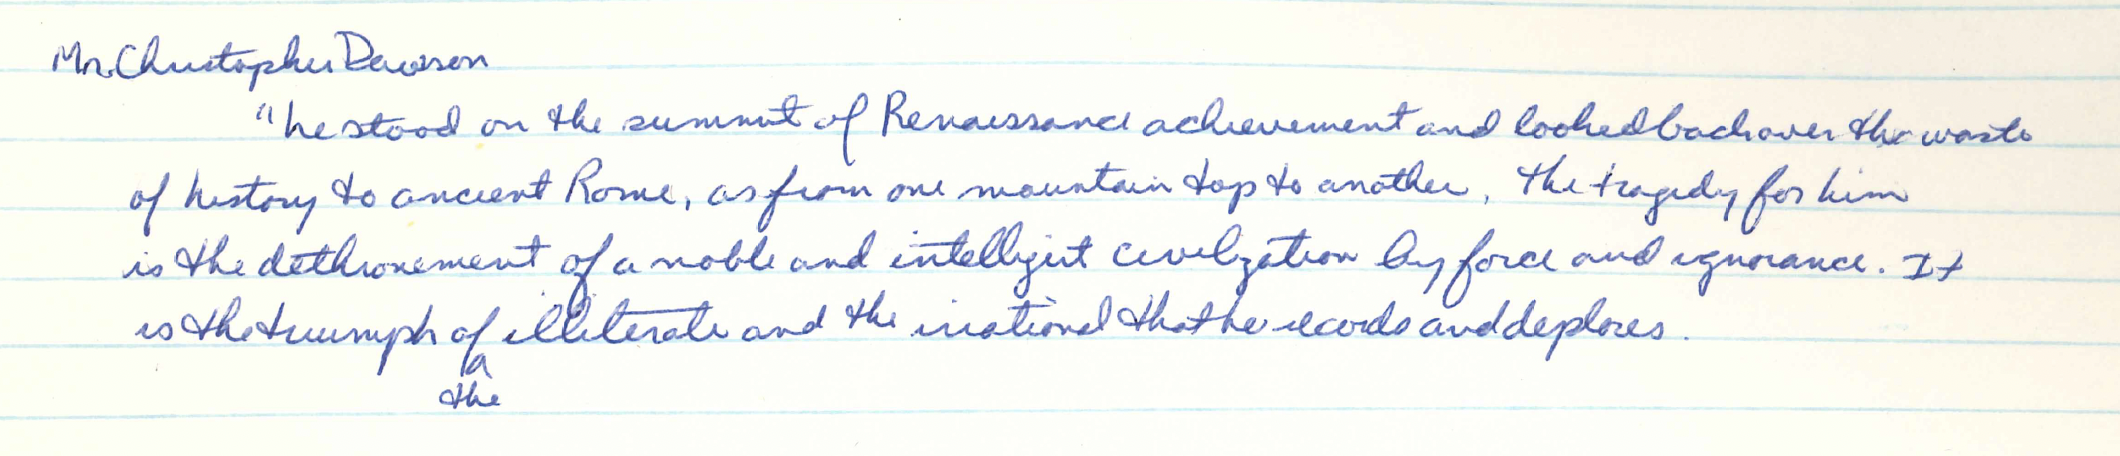 Mr. Christopher Dawson
"he stood on the summit of Renaissance achievement and looked back over the waste
of history to ancient Rome, as from one mountain top to another. The tragedy for him
is the dethronement of a noble and intelligent civilization by force and ignorance. It
is the triumph of illiterate and the irrational that he records and deplores.
^
the